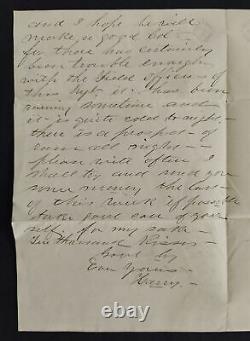 and I hope he will
make a good Col -
for there has certainly
been trouble enough
with the field officers of
this Regt. it has been
raining sometime and
it is quite cold to night -
there is a prospect of
rain all night -
please write often I
shall try and send you
some money the last
of this week if possible
take good care of your
self. for my sake -
Ten thousand Kisses -
Good by
Ever Yours -
Harry -